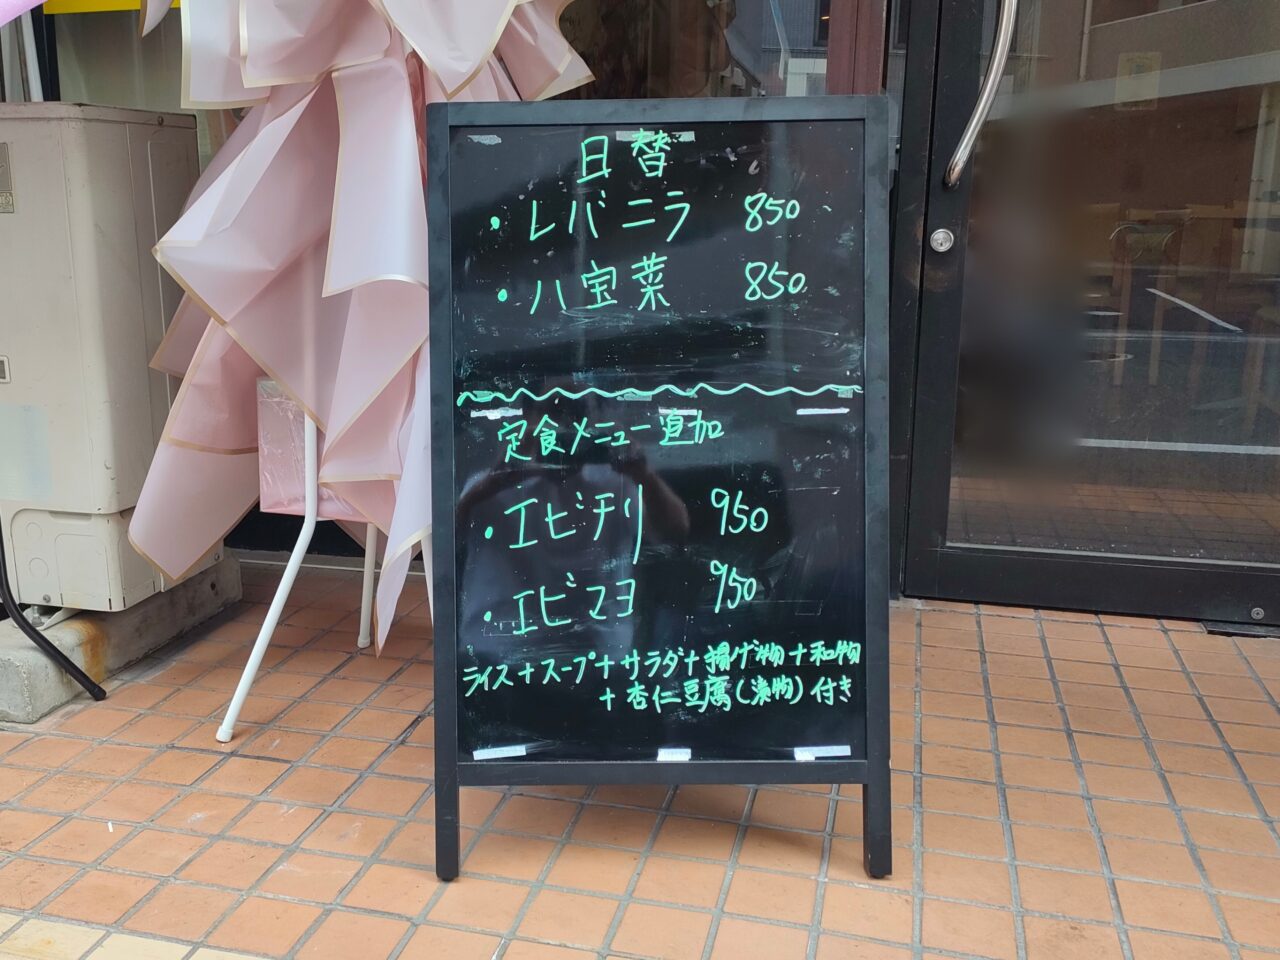 日替
・レバニラ 850
・八宝菜 850
定食メニュー追加
・エビチリ 950
・エビマヨ 950
ライス+スープ+サラダ+揚げ物+和物
+杏仁豆腐(漬物)付き